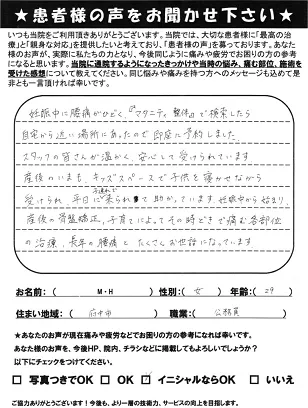 ★患者様の声をお聞かせ下さい★
いつも当院をご利用頂きありがとうございます。当院では、大切な患者様に「最高の治
療」と「親身な対応」を提供したいと考えており、「患者様の声」を募っております。あなた
様のお声が、実際に私たちの力となり、今後同じように痛みや疲労でお困りの方の参考
になると思います。当院に通院するようになったきっかけや当時の悩み、痛む部位、施術を
受けた感想について教えてください。同じ悩みや痛みを持つ方へのメッセージも込めて是
非とも一言頂ければ幸いです。
妊娠中に腰痛がひどく、『マタニティ 整体』で検索したら
自宅から近い場所にあったので即座に予約しました
スタッフの皆さんが温かく、安心して受けられています
産後のいまも、キッズスペースで子供を寝かせながら
受けられ、平日に子連れで来られて助かっています。妊娠中から始まり、
産後の骨盤矯正、子育てによってその時どきで痛む各部位
の治療、長年の腰痛とたくさんお世話になっています
お名前:( M・H ) 性別:( 女 ) 年齢:( 29 )
住まい地域:( 府中市 ) 職業:( 公務員 )
★あなたのお声が現在痛みや疲労などでお困りの方の参考になれば幸いです。
あなた様のお声を、今後HP、院内、チラシなどに掲載してもよろしいでしょうか?
以下にチェックをつけてください。
□ 写真つきでOK □ OK ☑ イニシャルならOK □ いいえ
ご協力ありがとうございます!今後も、より一層の技術力、サービスの向上を目指します。